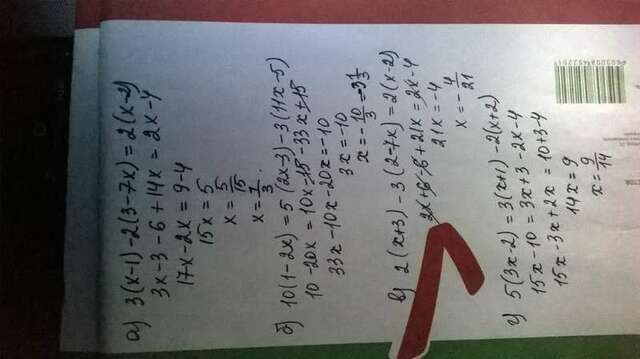 а) 3(x-1)-2(3-7x)=2(x-2)
3x-3-6+14x=2x-4
17x-2x=9-4
15x=5
x=5/15
x=1/3.
б) 10(1-2x)=5(2x-3)-3(11x-5)
10-20x=10x-15-33x+15
33x-10x-20x=-10
3x=-10
x=-10/3=-3 1/3
в) 2(x+3)-3(2-7x)=2(x-2)
2x+6-6+21x=2x-4
21x=-4
x=-4/21
г) 5(3x-2)=3(x+1)-2(x+2)
15x-10=3x+3-2x-4
15x-3x+2x=10+3-4
14x=9
x=9/14